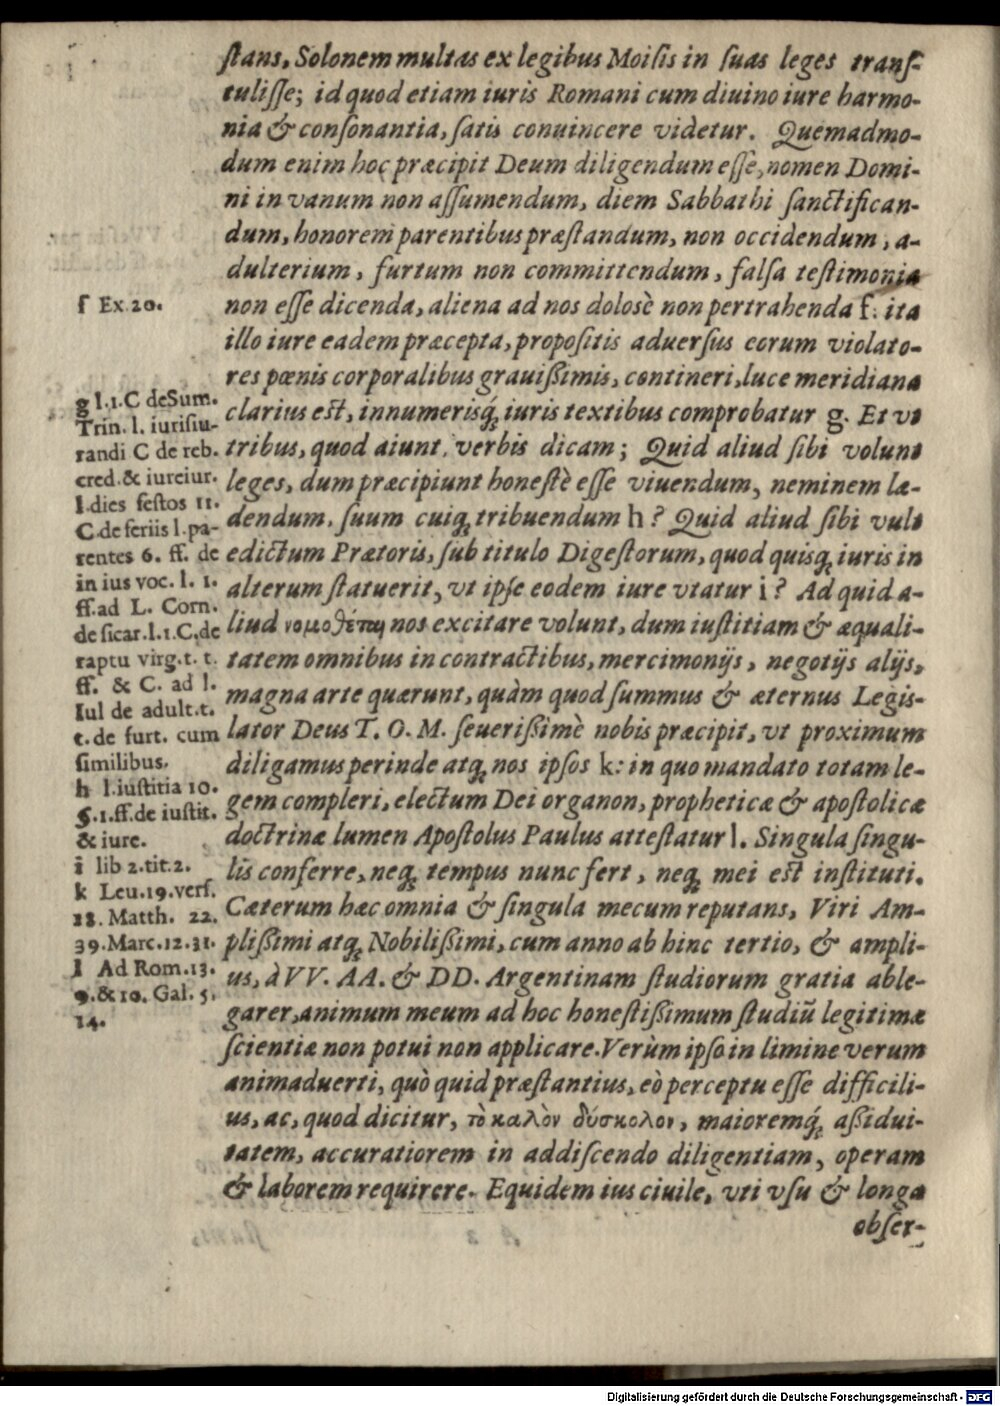 ſtans, Solonem multas ex legibus Moiſis in ſuas leges tranſ-
tuliſſe; id quod etiam iuris Romani cum diuino iure harmo-
nia & conſonantia, ſatis conuincere videtur. Quemadmo-
dum enim hoc præcipit Deum diligendum eſſe, nomen Domi-
ni in vanum non aſſumendum, diem Sabbathi ſanctifican-
dum, honorem parentibus præſtandum, non occidendum, a-
dulterium, furtum non committendum, falſa teſtimonia
non eſſe dicenda, aliena ad nos dolosè non pertrahenda f. ita
illo iure eadem præcepta, propoſitis aduerſus eorum violato-
res pœnis corporalibus grauißimis, contineri, luce meridiana
clarius eſt, innumerisq́; iuris textibus comprobatur g. Et vt
tribus, quod aiunt, verbis dicam; Quid aliud ſibi volunt
leges, dum præcipiunt honeſtè eſſe viuendum, neminem læ-
dendum, ſuum cuiq; tribuendum h? Quid aliud ſibi vult
edictum Prætoris, ſub titulo Digeſtorum, quod quisq; iuris in
alterum ſtatuerit, vt ipſe eodem iure vtatur i? Ad quid a-
liud νομοθέται nos excitare volunt, dum iuſtitiam & æquali-
tatem omnibus in contractibus, mercimonijs, negotijs alijs,
magna arte quærunt, quàm quod ſummus & æternus Legis-
lator Deus T. O. M. ſeuerißimè nobis præcipit, vt proximum
diligamus perinde atq; nos ipſos k: in quo mandato totam le-
gem compleri, electum Dei organon, propheticæ & apoſtolicæ
doctrinæ lumen Apoſtolus Paulus atteſtatur l. Singula ſingu-
lis conferre, neq; tempus nunc fert, neq; mei eſt inſtituti.
Cæterum hæc omnia & ſingula mecum reputans, Viri Am-
plißimi atq; Nobilißimi, cum anno ab hinc tertio, & ampli-
us, à VV. AA. & DD. Argentinam ſtudiorum gratia able-
garer, animum meum ad hoc honeſtißimum ſtudiũ legitimæ
ſcientiæ non potui non applicare. Verùm ipſo in limine verum
animaduerti, quò quid præſtantius, eò perceptu eſſe difficili-
us, ac, quod dicitur, τὸ καλὸν δύσκολον, maioremq́; aßidui-
tatem, accuratiorem in addiſcendo diligentiam, operam
& laborem requirere. Equidem ius ciuile, vti vſu & longa
obſer-
f Ex. 20.
g l.1.C de Sum.
Trin. l. iurisiu-
randi C de reb.
cred. & iureiur.
l.dies feſtos 11.
C.de feriis l.pa-
rentes 6. ff. de
in ius voc. l. 1.
ff.ad L. Corn.
de ſicar.l.1.C.de
raptu virg.t. t.
ff. & C. ad l.
Iul de adult.t.
t.de furt. cum
ſimilibus.
h l.iuſtitia 10.
§.1.ff.de iuſtit.
& iure.
i lib 2.tit.2.
k Leu.19.verſ.
18. Matth. 22.
39.Marc.12.31.
l Ad Rom.13.
9.&10. Gal. 5.
14.
Digitalisierung gefördert durch die Deutsche Forschungsgemeinschaft - DFG